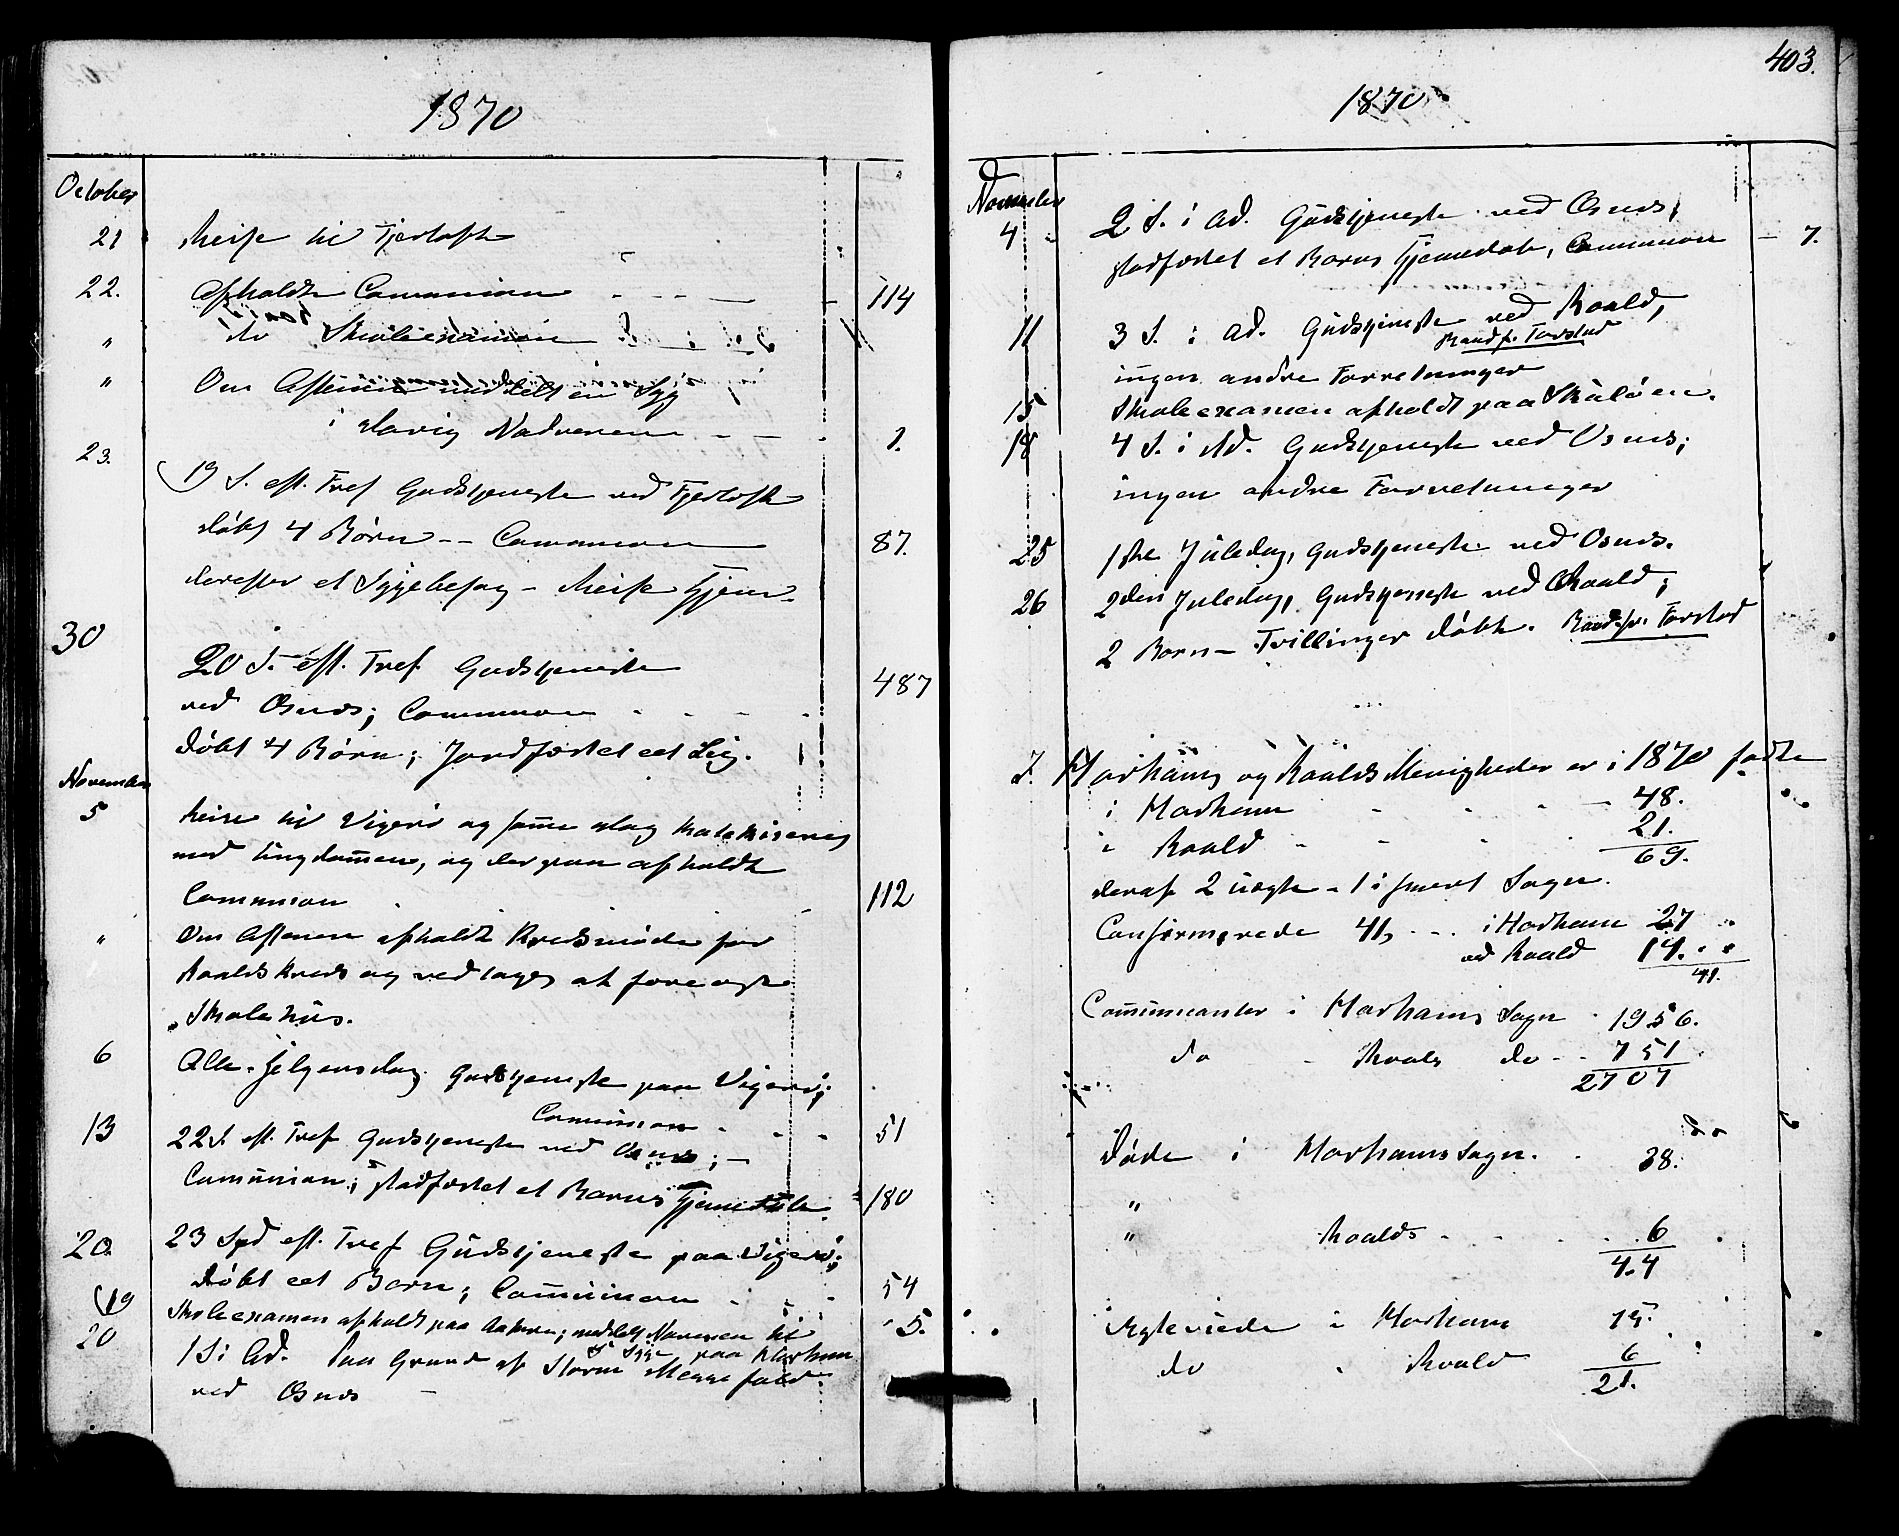 1870
October
21 Reise til Fjertoft
22. Afholdte Communion 114
" do Skoleexamen
" Om Aftenen meddelt en Syg
i Davig Nadveren 1.
23. 19 S. eft. Tref Gudstjeneste ved Fjertoft
døbt 4 Børn -- Communion 87.
derefter et Sygebesøg - Reise Hjem.
30 20 S. eft. Tref. Gudstjeneste
ved Osnes; Communion 487
døbt 4 Børn; Jordfæstet eet Lig.
November
5 Reise til Vigerø og samme dag Katekisering
med Ungdommen, og derpaa afholdt
Communion 112
" Om Aftenen afholdt Kredsmøde for
Roalds Kreds og vedtages at
Skolehus.
6 Alle-Helgensdag Gudstjeneste paa Vigerø;
Communion 51
13 22 S. eft. Tref Gudstjeneste ved Osnes;
Communion; stadfæstet et Barns Hjemmedaab. 180
20. 23 Spd eft. Tref Gudstjeneste paa Vigerø;
døbt eet Barn; Communion 54
19 Skoleexamen afholdt paa meddelt Naveren til 5.
Syge paa Harham
20 1 S i Ad. Paa Grund af Storm Messefald
ved Osnes
403.
1870
November
4 2 S. i Ad. Gudstjeneste ved Osnes;
stadfæstet et Barns Hjemmedaab, Communion 7.
11 3 S. i Ad. Gudstjeneste ved Roald,
Farstad
ingen andre Forretninger
15 Skoleexamen afholdt paa Skuløen.
18 4 S. i Ad. Gudstjeneste ved Osnes;
ingen andre Forretninger
25 1ste Juledag, Gudstjeneste ved Osnes.
26 2den Juledag, Gudstjeneste ved Roald;
2 Børn - Tvillinger døbte. Farstad
I Harhams og Roalds Menigheder er i 1870 fødte
i Harham 48.
i Roald 21.
69.
deraf 2 uægte - 1 i hvert Sogn.
Confirmerede 41, i Harham 27
ved Roald 14.
41.
Communicanter i Harhams Sogn 1956.
do Roalds do 751
2707
Døde i Harhams Sogn. 38.
"
" Roalds 6
44
Ægteviede i Harham 15.
do Roald 6
21.